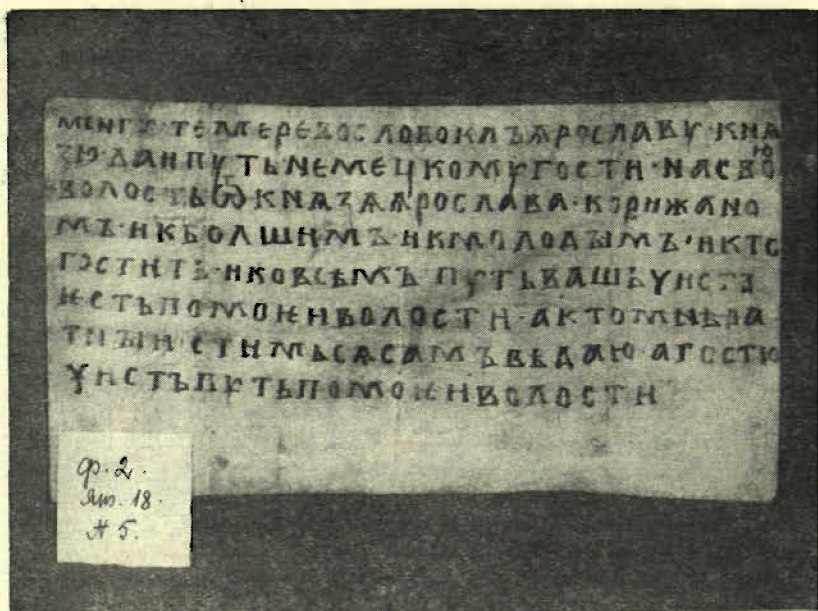 МЕНГУ·ТЕМЕРЕВОСЛОВОКЛЪѦРОСЛАВУ·КНѦ
ЗЮ·ДАИПУТЬНЕМЕЦКОМУГОСТИ·НАСВОЮ
ВОЛОСТЬѾКНѦЗѦѦРОСЛАВА·КОРИЖАНО
МЪ·ИКБОЛШИМЪ·ИКМОЛОДЫМЪ·ИКТО
ГОСТИТЬ·ИКОВСѢМЪ·ПУТЬВАШЬЧИСТЪ
ѤСТЬПОМОѤИВОЛОСТИ·АКТОМНѢРА
ТНЪИИ·СТИМЬСѦСАМЪВѢДАЮ·АГОСТЮ
ЧИСТЪПУТЬПОМОѤИВОЛОСТИ
ф. 2.
ящ. 18.
№ 5.